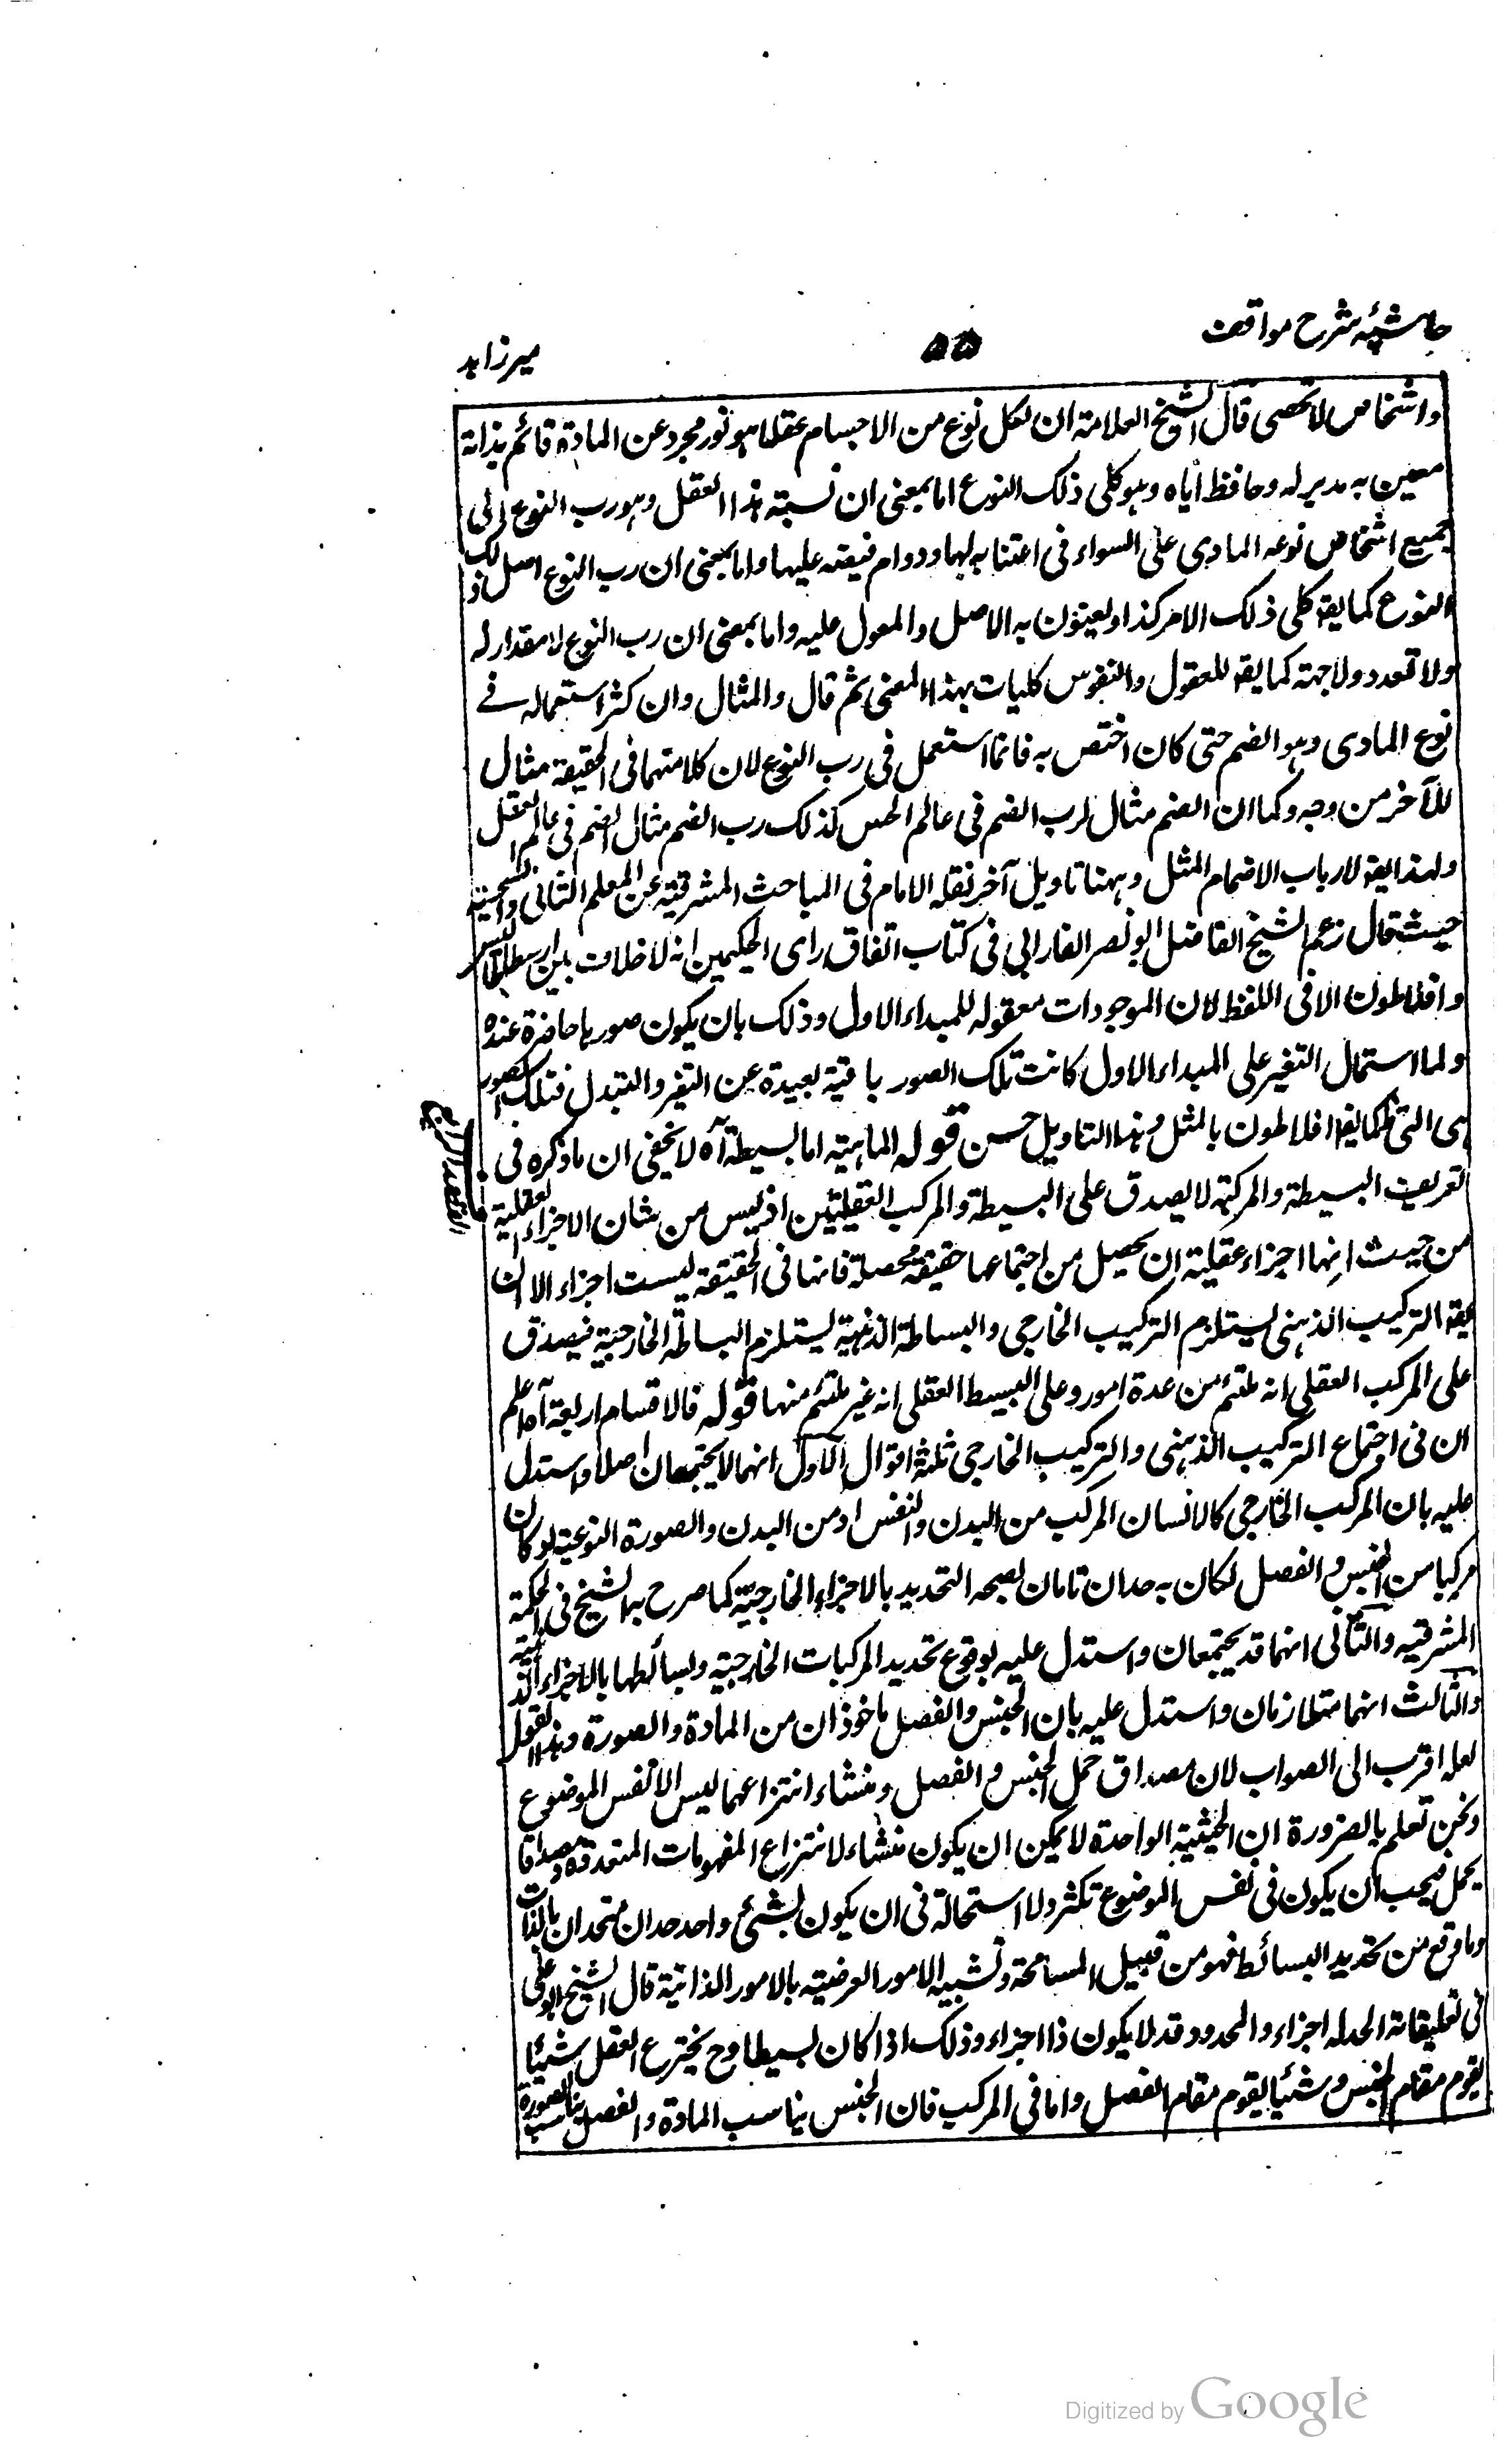 حاشیه شرح مواقف
۵۵
میرزاهد
واشخاص لا تحصى قال الشيخ العلامة ان لكل نوع من الاجسام عقلا هو نور مجرد عن المادة قائم بذاته
معين به مدبر له وحافظ اياه وهو كلى ذلك النوع اما بمعنى ان نسبة هذا العقل وهو رب النوع الى
جميع اشخاص نوعه المادى على السواء فى اعتنائه بها ودوام فيضه عليها واما بمعنى ان رب النوع اصل ذلك
النوع كما يقه كلى ذلك الامر كذا ويعينون به الاصل والمعول عليه واما بمعنى ان رب النوع لا مقدار له
ولا تعدد ولا جهة كما يقه للعقول والنفوس كليات بهذا المعنى ثم قال والمثال وان كثر استعماله فے
نوع المادى وهو الصنم حتى كان اختص به فانما استعمل فى رب النوع لان كلا منهما فى الحقيقة مثال
للآخر من وجه وكما ان الصنم مثال لرب الصنم فى عالم الحس كذلك رب الصنم مثال الصنم فى عالم العقل
ولهذا يقه لارباب الاصنام المثل وههنا تاويل آخر نقله الامام فى المباحث المشرقية عن المعلم الثانى واستحسنه
حيث قال زعم الشيخ الفاضل ابو نصر الفارابى فى كتاب اتفاق راى الحكيمين انه لا خلاف بين ارسطاطاليس
وافلاطون الا فى اللفظ لان الموجودات معقوله للمبداء الاول وذلك بان يكون صورها حاضرة عنده
ولما استحال التغير على المبداء الاول كانت تلك الصور باقية بعيدة عن التغير والتبدل فتلك الصور
هى التى افلاطون بالمثل وهذا التاويل حسن قوله الماهية اما بسيطة آه لا يخفى ان ما ذكره فى
تعريف البسيطة والمركبة لا يصدق على البسيطة والمركب العقليتين اذ ليس من شان الاجزاء العقلية
من حيث انها اجزاء عقلية ان يحصل من اجتماعها حقيقة محصلة فانها فى الحقيقة ليست اجزاء الا ان
يقه التركيب الذهنى يستلزم التركيب الخارجى والبساطة الذهنية يستلزم البساطة الخارجية فيصدق
على المركب العقلى انه ملتئم من عدة امور وعلى البسيط العقلى انه غير ملتئم منها قوله فالاقسام اربعة آه اعلم
ان فى اجتماع التركيب الذهنى والتركيب الخارجى ثلثة اقوال الاول انهما لا يجتمعان اصلا واستدل
عليه بان المركب الخارجى كالانسان المركب من البدن والنفس او من البدن والصورة النوعية لو كان
مركبا من الجنس والفصل لكان به حدان تامان لصحه التحديد بالاجزاء الخارجية كما صرح به الشيخ فى الحكمة
المشرقيه والثانى انهما قد يجتمعان واستدل عليه بوقوع تحديد المركبات الخارجية وبسائطها بالاجزاء الذهنية
والثالث انهما متلازمان واستدل عليه بان الجنس والفصل ماخوذان من المادة والصورة وهذا القول
لعله اقرب الى الصواب لان مصداق حمل الجنس والفصل ومنشاء انتزاعهما ليس الا نفس الموضوع
ونحن نعلم بالضرورة ان الحيثية الواحدة لا يمكن ان يكون منشاء لانتزاع المفهومات المتعددة ومصداقا
يحمل فيجب ان يكون فى نفس الموضوع تكثر ولا استحالة فى ان يكون لشئ واحد حدان متحدان بالذات
وما وقع من تحديد البسائط فهو من قبيل المسامحة وتشبيه الامور العرضيه بالامور الذاتية قال الشيخ ابو على
فى تعليقاته الحد له اجزاء والمحدود قد لا يكون ذا اجزاء وذلك اذا كان بسيطا وح يخترع العقل شيئا
يقوم مقام الجنس وشيئا يقوم مقام الفصل واما فى المركب فان الجنس يناسب المادة والفصل يناسب الصورة
المقصد الرابع
Digitized by Google